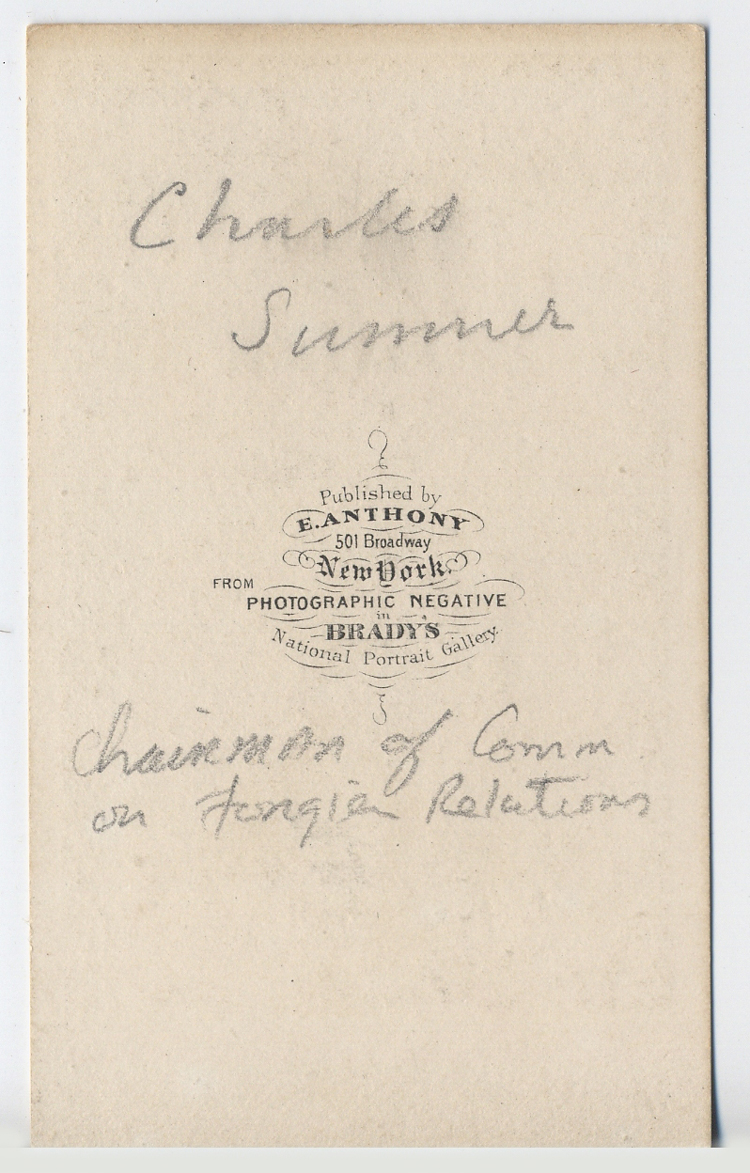 Charles
Sumner
Published by
E. ANTHONY
501 Broadway
New York.
FROM
PHOTOGRAPHIC NEGATIVE
in
BRADY'S
National Portrait Gallery.
Chairman of Comm
on Forgien Relations